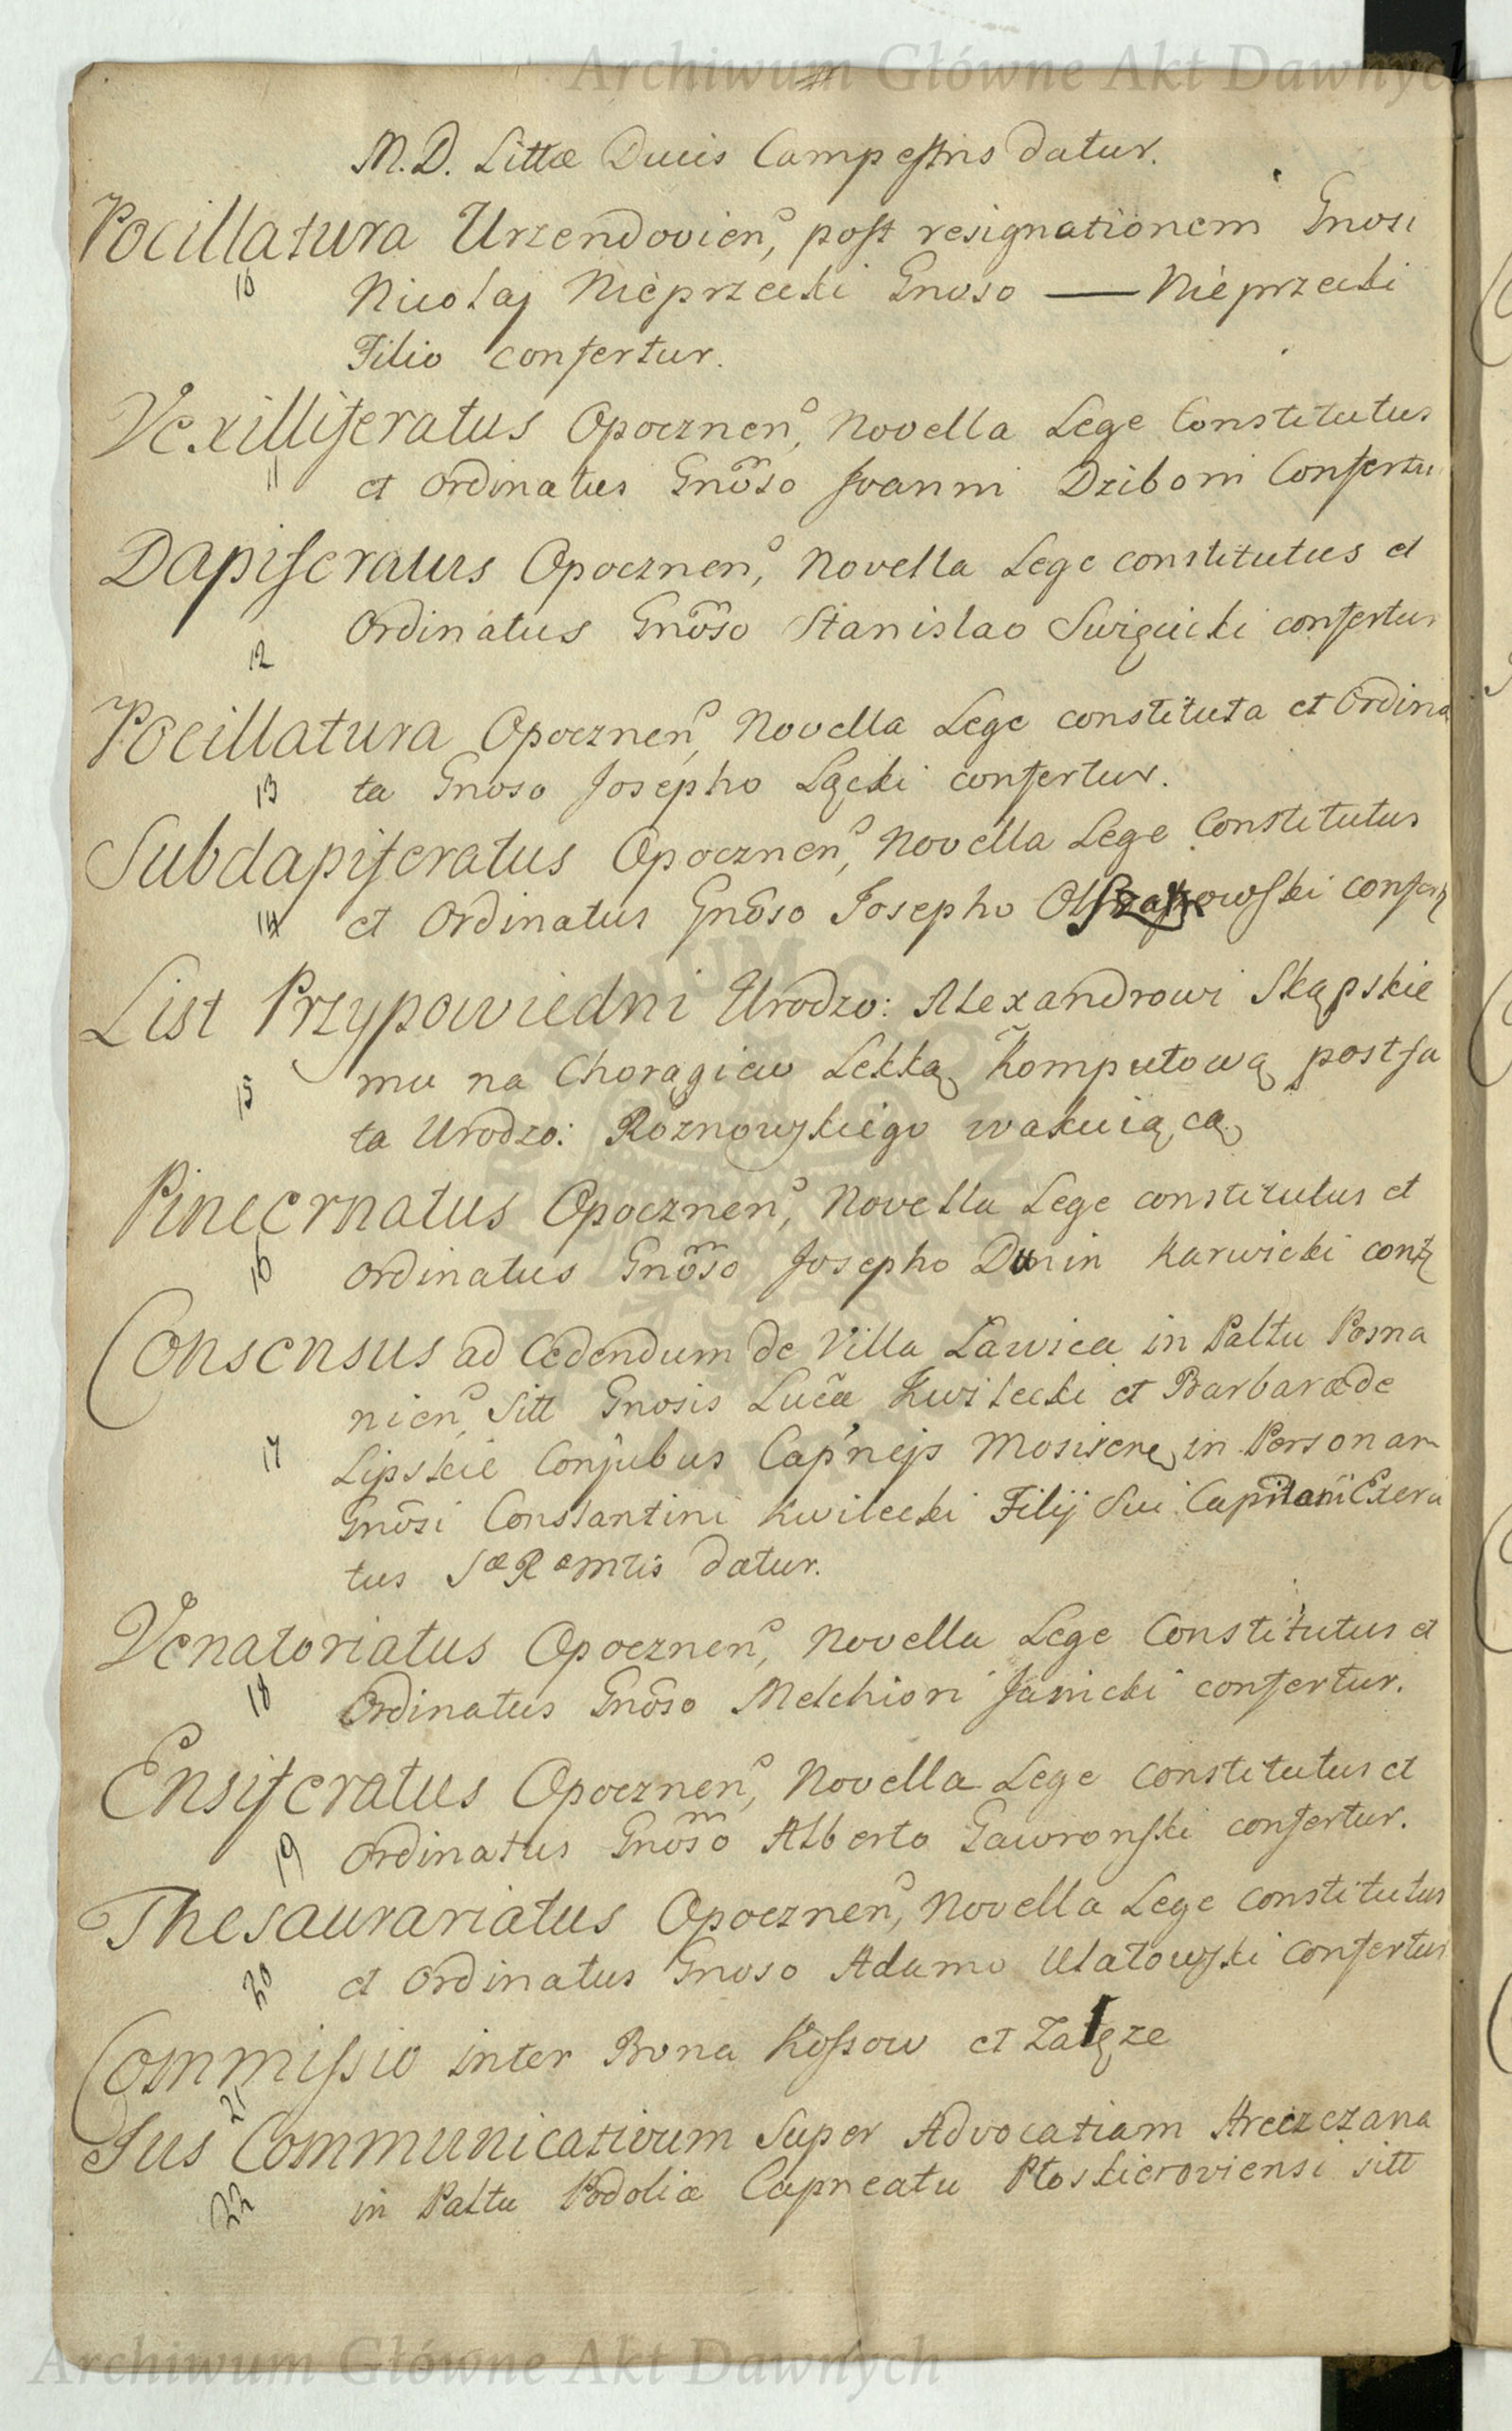 Archiwum Główne Akt Dawnych
M.D. Littæ Ducis Campestris datur.
Pocillatura Urzendovien, post resignationem Gnosi
10 Nicolaj Nieprzecki Gnoso — Nieprzecki
Filio confertur.
Vexilliferatus Opocznen, Novella Lege Constitutus
11 et ordinatus Gnoso Joanni Dziboni Confertu
Dapiferatus Opocznen, Novella Lege constitutus et
12 Ordinatus Gnoso Stanislao Swięcicki confertur
Pocillatura Opocznen, Novella Lege constituta et Ordina
13 ta Gnoso Josepho Łącki confertur.
Subdapiferatus Opocznen, Novella Lege Constitutus
14 et Ordinatus Gnoso Josepho confer
List Przypowiedni Urodzo: Alexandrowi Skąpskie
15 mu na Chorągiew Lekką Komputową post fa
ta Urodzo: Roznowskiego wakuiącą
Pincernatus Opocznen, Novella Lege constitutus et
16 ordinatus Gnoso Josepho Dunin Karwicki conf
Consensus ad Cedendum de Villa Ławica in Paltu Posna
nien, Sitt Gnosis Lucæ Kwilecki et Barbaræ de
17 Lipskie Conjubus Capnejs Mosiscen, in Personam
Gnosi Constantini Kwilecki Filij Sui Capitani Exerci
tus Sæ Ræ Mtis datur.
Venatoriatus Opocznen, Novella Lege Constitutus et
18 Ordinatus Gnoso Melchiori Janicki confertur.
Ensiferatus Opocznen, Novella Lege constitutus et
19 Ordinatus Gnoso Alberto Gawronski confertur.
Thesaurariatus Opocznen, Novella Lege constitutus
20 et Ordinatus Gnoso Adamo Ulatowski confertur
Commissio inter Bona Kossow et Załęze
21
Jus Communicativum super Advocatiam Hreczczana
22 in Paltu Podoliæ Capneatu Płoskieroviensi sitt
Archiwum Główne Akt Dawnych